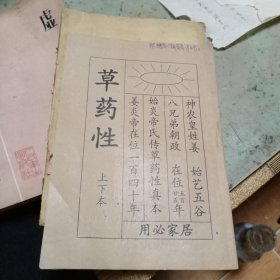 神农皇姓姜 始艺五谷
八兄弟朝政 在位五百廿五年
始炎帝氏传草药性真本
姜炎帝在位一百四十年
居家必用
草药性
上下本
虚